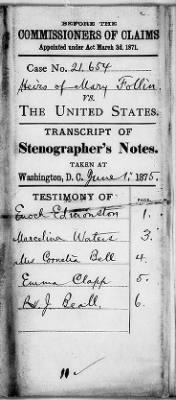 BEFORE THE
COMMISSIONERS OF CLAIMS
Appointed under Act March 3d, 1871.
Case No. 21.654
Heirs of Mary Follin
VS.
THE UNITED STATES.
TRANSCRIPT OF
Stenographer's Notes.
TAKEN AT
Washington, D.C. June 1, 1875.
TESTIMONY OF PAGE.
Enoch Edmonston 1.
Marcelina Waters 3.
Mrs Cornelia Bell 4.
Emma Clapp 5.
J. Beall. 6.